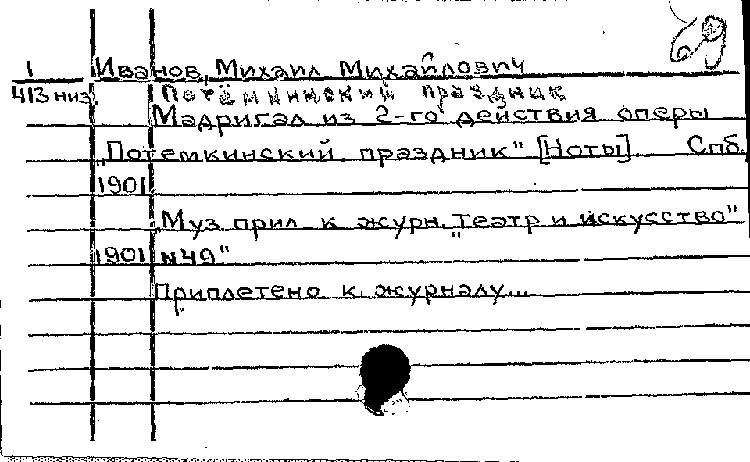 69
1 Иванов, Михаил Михайлович
413 низ. Потёмкинский праздник
Мадригал из 2-го действия оперы
„Потемкинский праздник" [Ноты]. Спб.,
1901
„Муз. прил. к журн. „Театр и искусство"
1901 №49"
Приплетено к журналу...